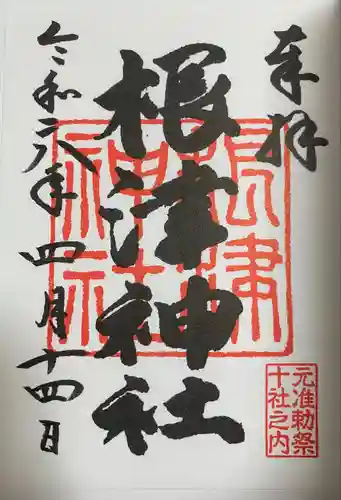 奉拝
根津神社
令和六年四月十四日
根津
神社
元准勅祭
十社之内